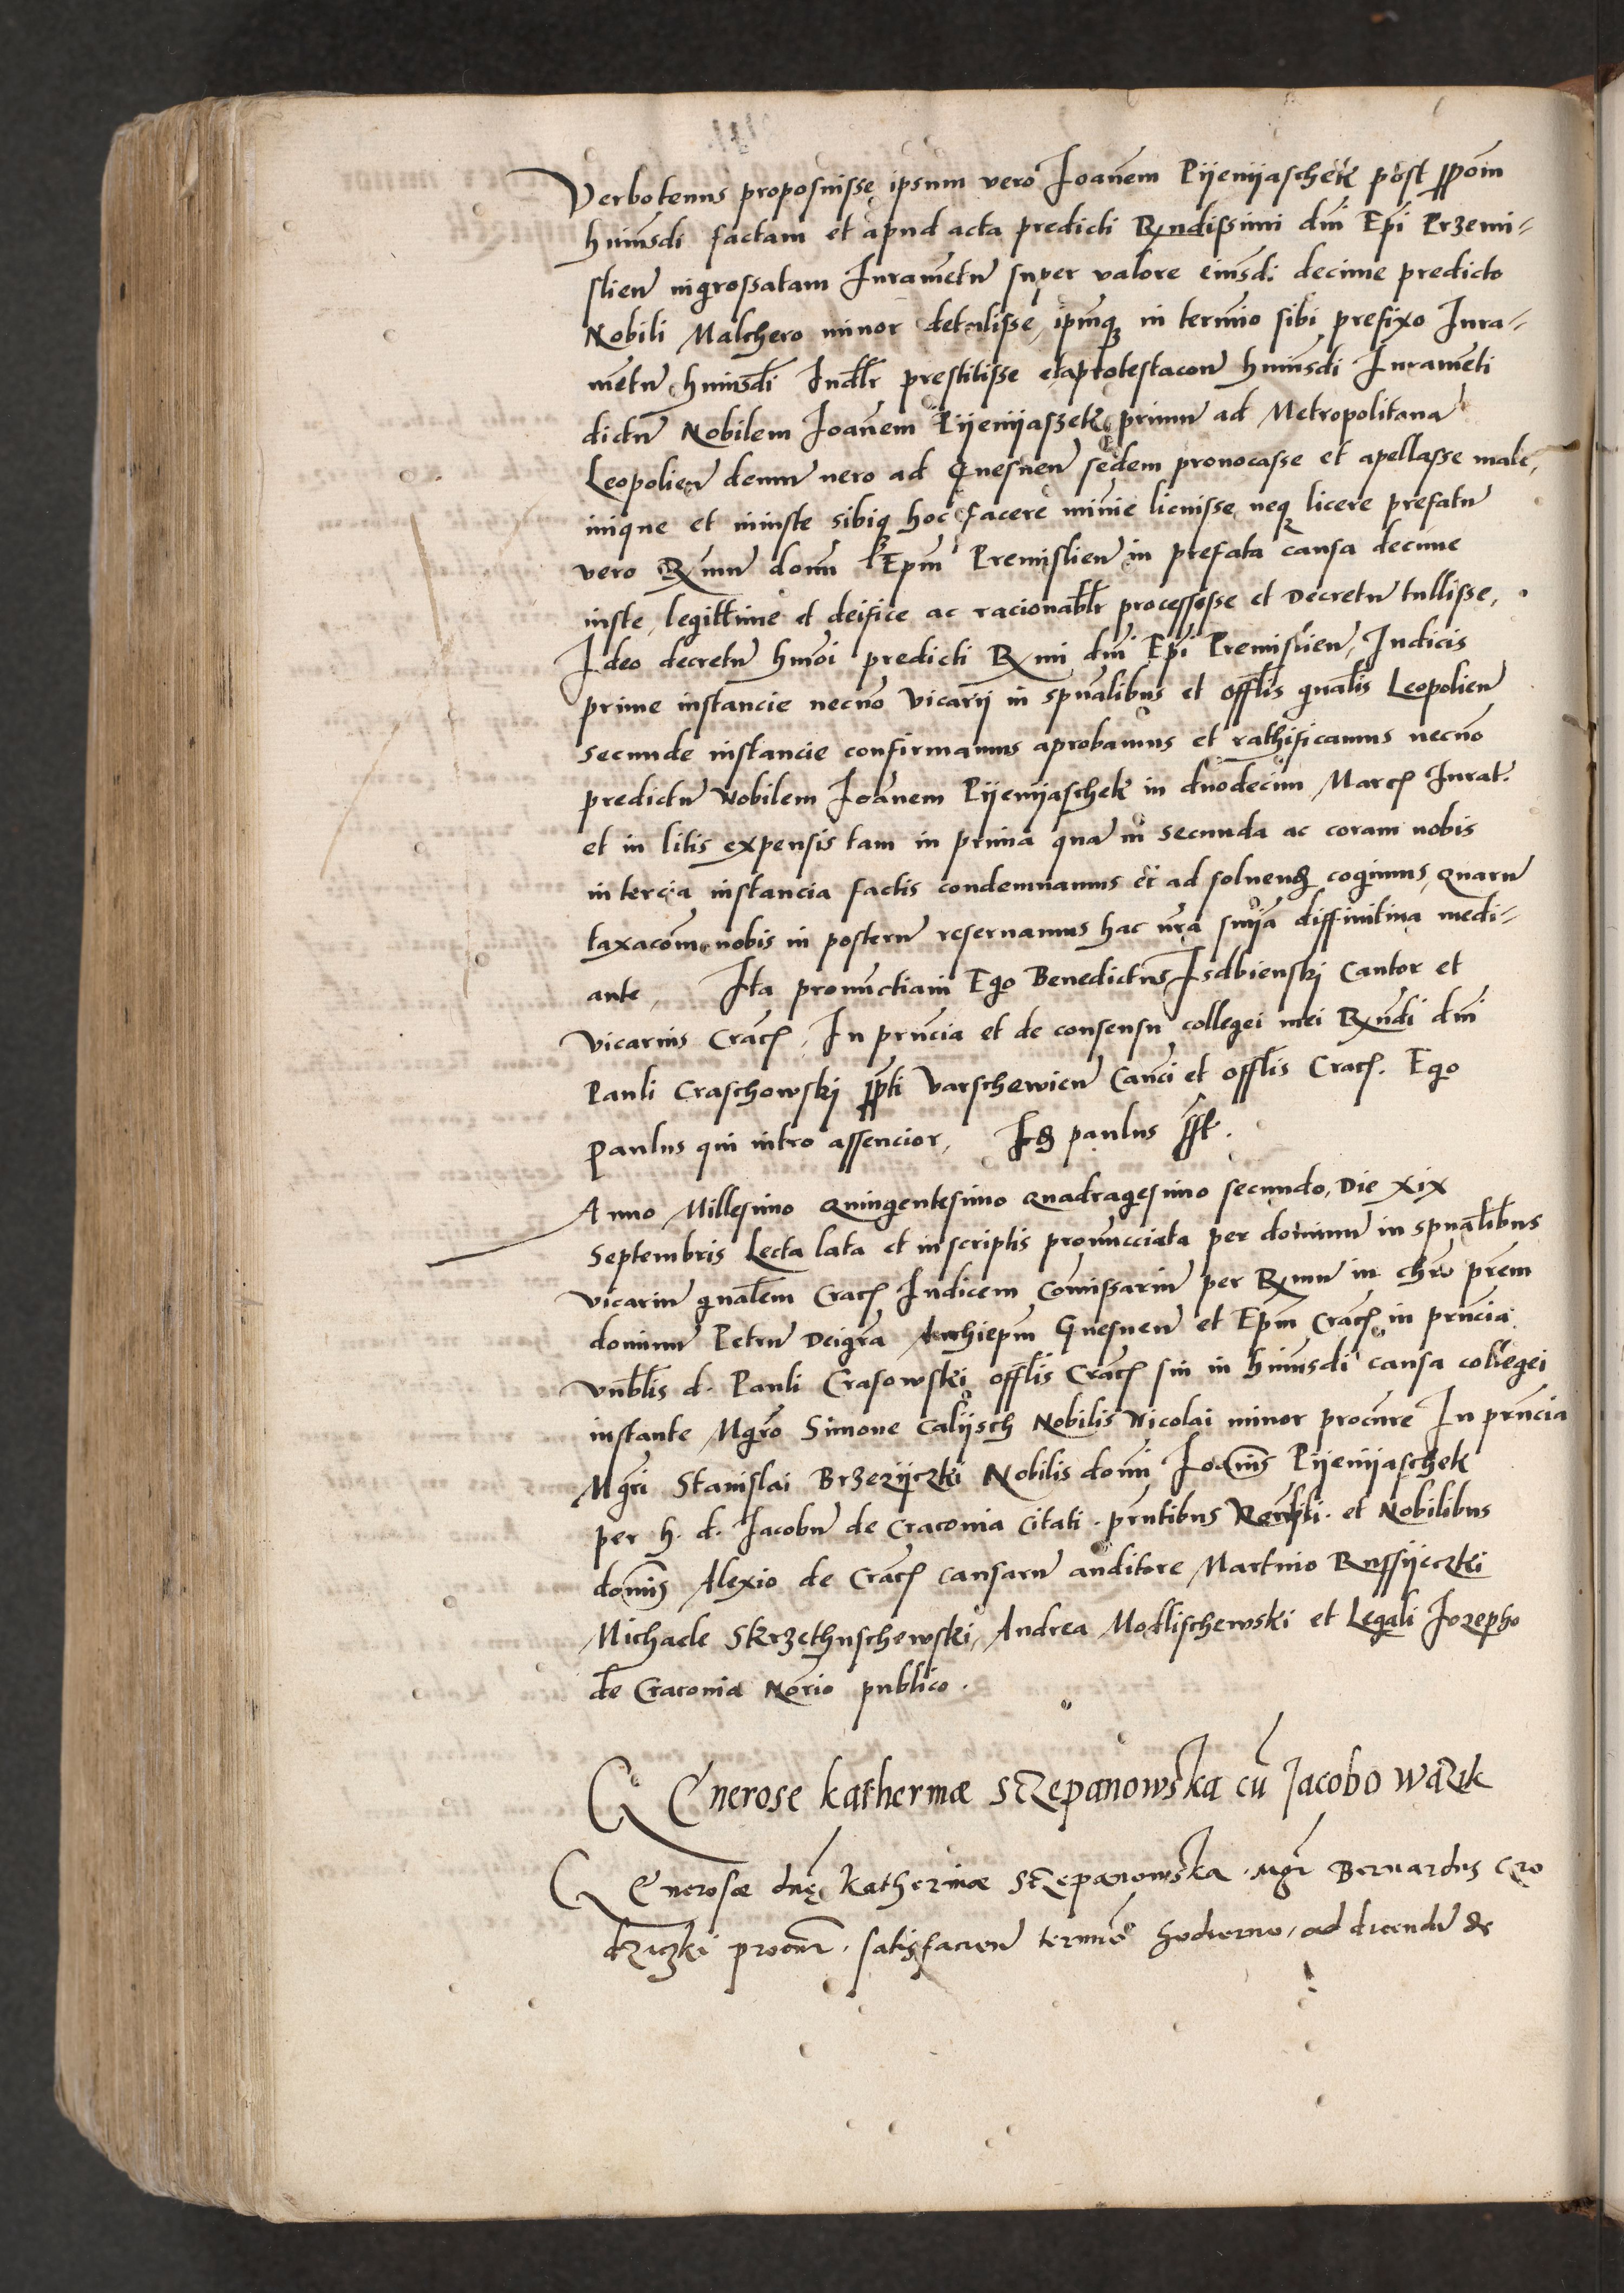 Verbotenus proposuisse, ipsum vero Joanem Pijenijaschek post ppom̄
huiusdi factam et apud acta predicti Rx̄ndissimi dni Epi Przemi-
slien̄ ingrossatam Juramētū super valore eiusdi decime predicto
Nobili Malchero minor detulisse, ipmq̄ in termīo sibi prefixo Jura-
mētū huiusdi Judlr prestitisse et a protestacoē huiusdi Juramēti
dictū Nobilem Joanem Pijenijaszek primū ad Metropolitanā
Leopolien̄ demū vero ad Gnesnen̄ sedem provocasse et apellasse male,
inique et iniuste sibiq̄ hoc facere minīe licuisse, neq̄ licere prefatū
vero Rx̄mū domn̄ Epm̄ Premislien̄ in prefata causa decime
iuste, legittime et deifice ac racionablr processisse et Decretū tullisse,
Ideo decretū hmōi predicti Rx̄mi dni Epi Premislien̄, Judicis
prime instancie necnō vicarij in spualibus et offlis gnalis Leopolien̄
secunde instancie confirmamus aprobamus et rathificamus necnō
predictū Nobilem Joanem Pijenijaschek in duodecim Marcȩ Jurat.
et in litis expensis tam in prima quā in secunda ac coram nobis
in tercia instancia factis condemnamus et ad solvend cogimus, quarū
taxacōm nobis in posterū reservamus hac nrā snīa diffinitiva medi-
ante, Ita pronunctiavi Ego Benedictus Isdbienski Cantor et
vicarius Cracȩ, In prn̄cia et de consensu collegei mei Rx̄ndi dni
Pauli Craschowskj ppti Varschewien̄ Canci et offlis Cracȩ. Ego
Paulus qui intro assencior, Id paulus sst.
Anno Millesimo Quingentesimo Quadragesimo secundo, Die xix
Septembris Lecta lata et in scriptis pronuncciata per dominū in spualibus
vicariū gnalem Cracȩ Judicem Comissariū per Rx̄mū in chrō prem̄
dominū Petrū Dei gra Archiepm̄ Gnesnen̄ et Epm̄ Cracȩ in prn̄cia
vnblis d. Pauli Crasowski offlis Cracȩ sui in huiusdi causa collegei
instante Mgrō Simone Calijsch Nobilis Nicolai minor procure In prn̄cia
Mgri Stanislai Brzezijczki Nobilis domi Joānis Pijenijaschek
per h. d. Jacobū de Cracovia Citati. prn̄tibus et Nobilibus
domīs Alexio de Cracȩ causarū auditore Martino Russijeczki
Michaele Skrzethuschewski, Andrea Modlischewski et Legali Jozepho
de Cracovia Norio publico.
GEnerose katherinæ Sczepanowska cū Jacobo Wązik
GEnerosæ dnę katherinæ Sczepanowska. Mgr Bernardus Cro
dziczki procur. satisfacien̄ termīo hodierno, ad dicendū &